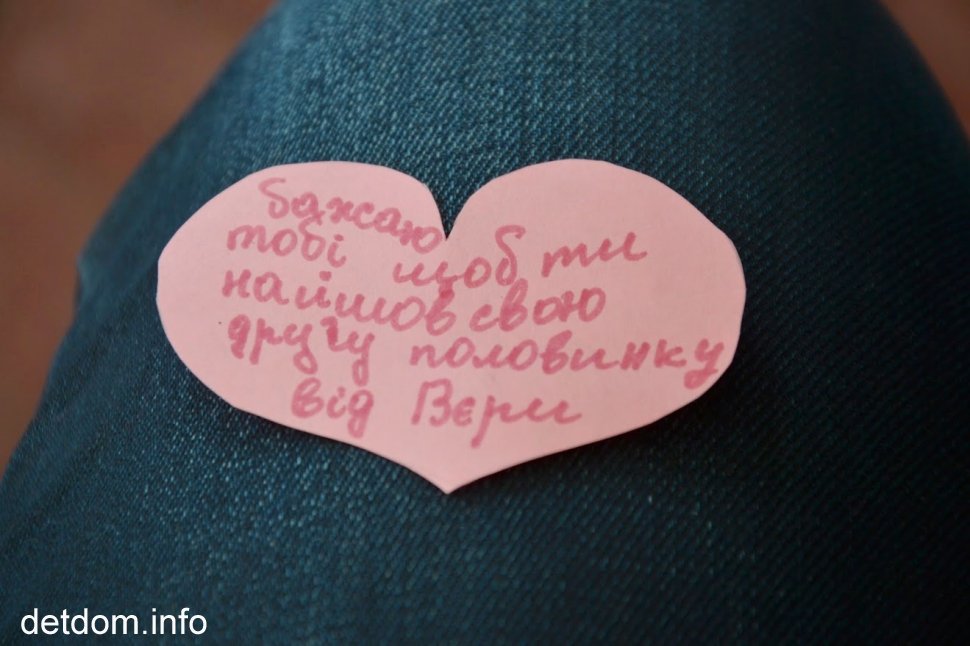 бажаю
тобі щоб ти
найшов свою
другу половинку
від Вєри
detdom.info